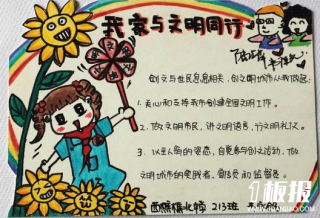 我家与文明同行
创文与世民息息相关，创文明城市从我做起：
1. 关心和支持我市创建全国文明工作。
2. 做文明市民，讲文明语言，行文明礼仪。
3. 以主人翁的姿态，自觉参与创文活动，做
文明城市的实践者、宣传员和监督员。
213班
1板报
WWW.1BANBAO.COM